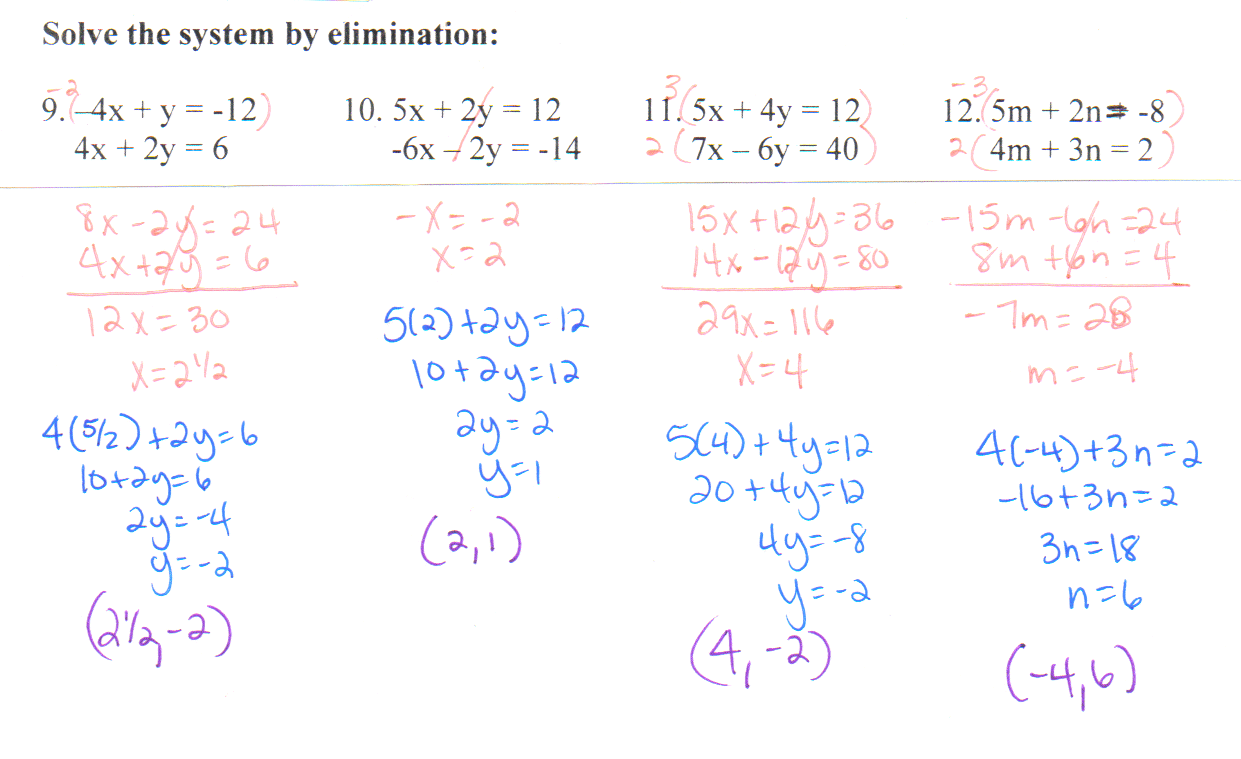 Solve the system by elimination:
-2
9. (-4x + y = -12)
4x + 2y = 6
8x - 2y = 24
4x + 2y = 6
12x = 30
x = 2 1/2
4(5/2) + 2y = 6
10 + 2y = 6
2y = -4
y = -2
(2 1/2, -2)
10. 5x + 2y = 12
-6x – 2y = -14
-x = -2
x = 2
5(2) + 2y = 12
10 + 2y = 12
2y = 2
y = 1
(2, 1)
3
11. (5x + 4y = 12)
2 (7x – 6y = 40)
15x + 12y = 36
14x - 12y = 80
29x = 116
x = 4
5(4) + 4y = 12
20 + 4y = 12
4y = -8
y = -2
(4, -2)
-3
12. (5m + 2n = -8)
2 (4m + 3n = 2)
-15m - 6n = 24
8m + 6n = 4
-7m = 28
m = -4
4(-4) + 3n = 2
-16 + 3n = 2
3n = 18
n = 6
(-4, 6)